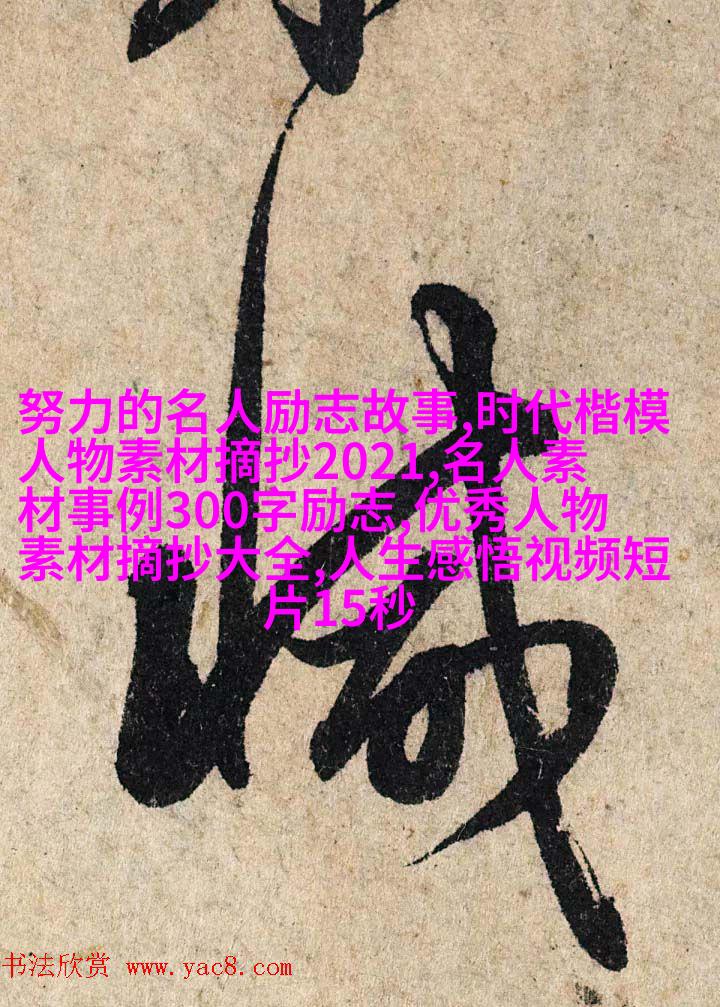 努力的名人励志故事,时代楷模
人物素材摘抄2021,名人素
材事例300字励志,优秀人物
素材摘抄大全,人生感悟视频短
片15秒
书法欣赏 www.yac8.com